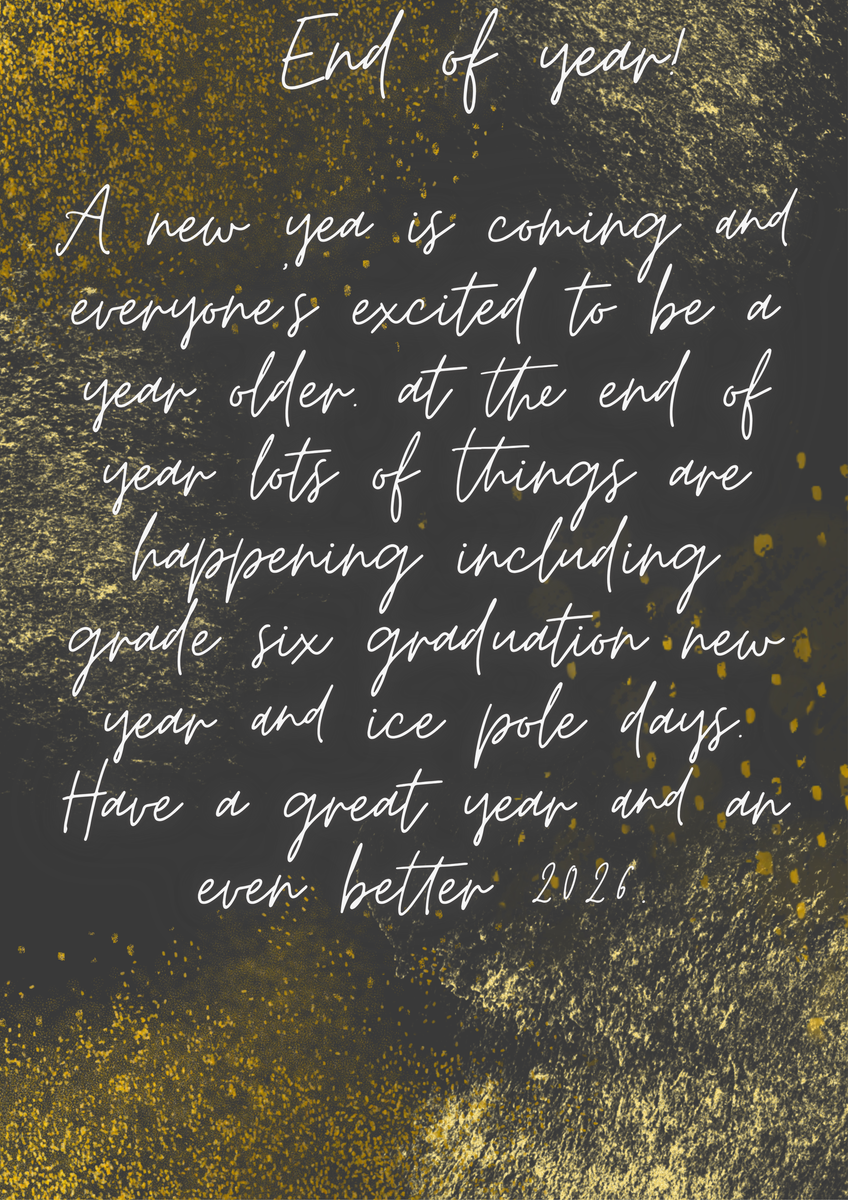 End of year!
A new yea is coming and
everyone's excited to be a
year older. at the end of
year lots of things are
happening including
grade six graduation new
year and ice pole days.
Have a great year and an
even better 2026.